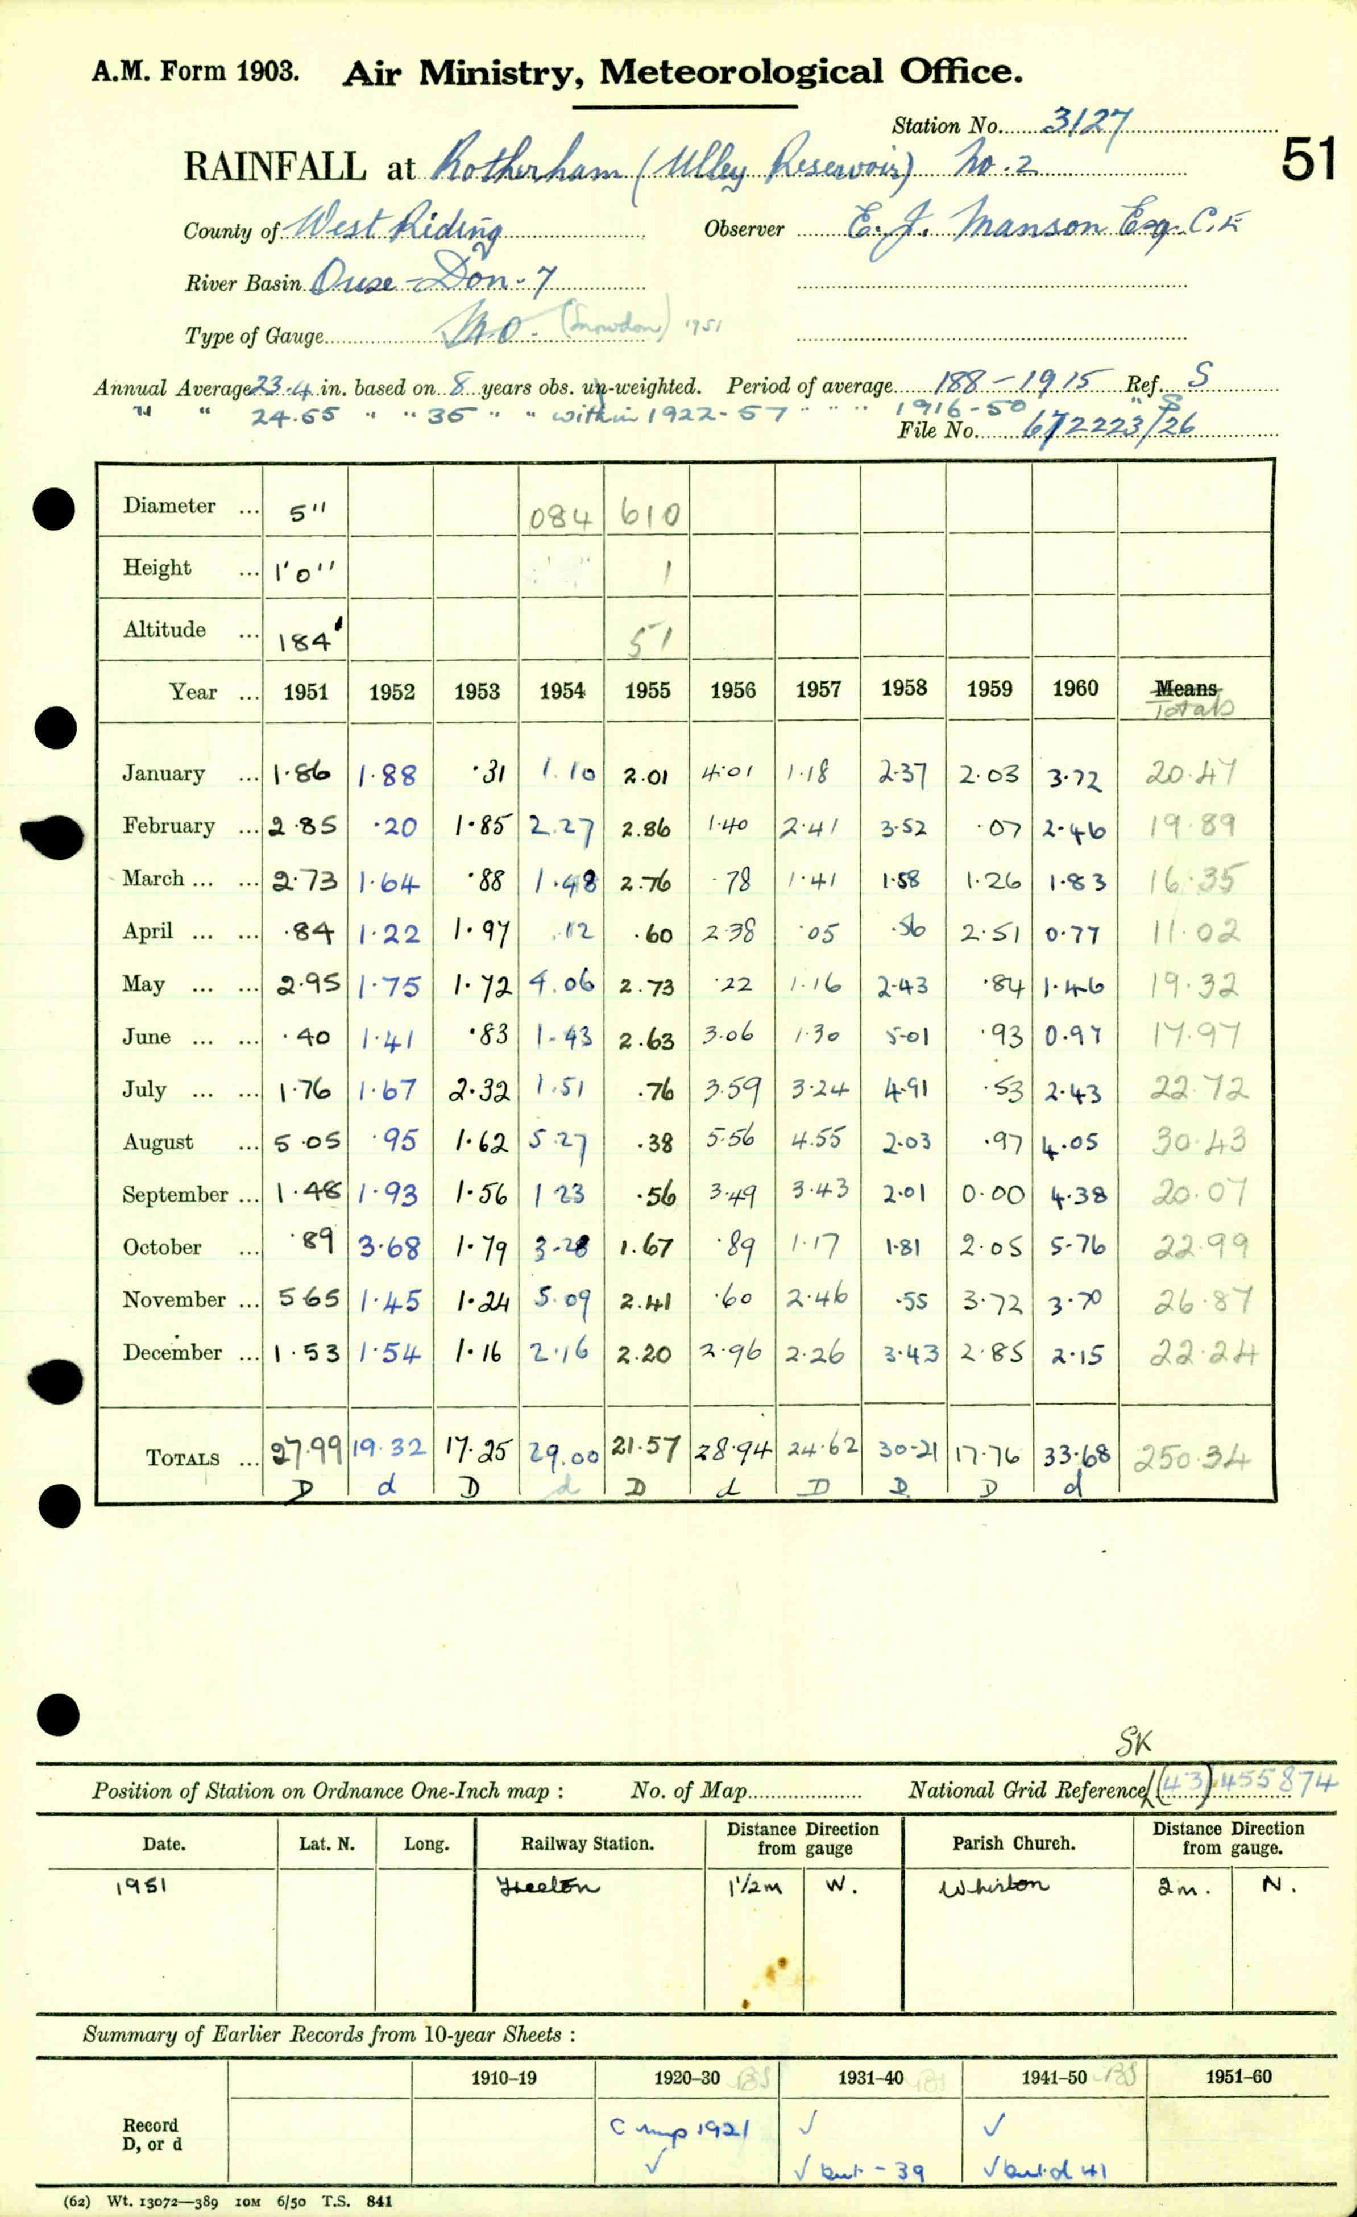 A.M. Form 1903. Air Ministry, Meteorological Office.
Station No. 3127
51
RAINFALL at Rotherham (Ulley Reservoir) No. 2
County of West Riding Observer E. J. Manson Esq. C.E
River Basin Ouse - Don - 7
Type of Gauge MO. (Snowdon) 1951
Annual Average 23.4 in. based on 8 years obs. un-weighted. Period of average 188 - 1915 Ref. S
" " 24.65 " " 35 " " within 1922-57 " " " 1916-50 " S
File No. 672223/26
Diameter ... 5" 084 610
Height ... 1'0" 1
Altitude ... 184' 51
Year ... 1951 1952 1953 1954 1955 1956 1957 1958 1959 1960 Means Totals
January ... 1.86 1.88 .31 1.10 2.01 4.01 1.18 2.37 2.03 3.72 20.47
February ... 2.85 .20 1.85 2.27 2.86 1.40 2.41 3.52 .07 2.46 19.89
March ... ... 2.73 1.64 .88 1.48 2.76 .78 1.41 1.58 1.26 1.83 16.35
April ... ... .84 1.22 1.97 .12 .60 2.38 .05 .56 2.51 0.77 11.02
May ... ... 2.95 1.75 1.72 4.06 2.73 .22 1.16 2.43 .84 1.46 19.32
June ... ... .40 1.41 .83 1.43 2.63 3.06 1.30 5.01 .93 0.97 17.97
July ... ... 1.76 1.67 2.32 1.51 .76 3.59 3.24 4.91 .53 2.43 22.72
August ... 5.05 .95 1.62 5.27 .38 5.56 4.55 2.03 .97 4.05 30.43
September ... 1.48 1.93 1.56 1 23 .56 3.49 3.43 2.01 0.00 4.38 20.07
October ... .89 3.68 1.79 3.28 1.67 .89 1.17 1.81 2.05 5.76 22.99
November ... 5 65 1.45 1.24 5.09 2.41 .60 2.46 .55 3.72 3.70 26.87
December ... 1.53 1.54 1.16 2.16 2.20 2.96 2.26 3.43 2.85 2.15 22.24
TOTALS ... 27.99 19.32 17.25 29.00 21.57 28.94 24.62 30.21 17.76 33.68 250.34
D d D d D d D D D d
SK
Position of Station on Ordnance One-Inch map : No. of Map National Grid Reference (43) 455874
Date. Lat. N. Long. Railway Station. Distance from Direction gauge Parish Church. Distance from Direction gauge.
1951 Treeton 1 1/2 m W. Whiston 2m. N.
Summary of Earlier Records from 10-year Sheets :
1910-19 1920-30 BS 1931-40 BS 1941-50 BS 1951-60
Record C 1921 ✓ ✓
D, or d ✓ ✓ but - 39 ✓ but d 41
(62) Wt. 13072—389 10M 6/50 T.S. 841